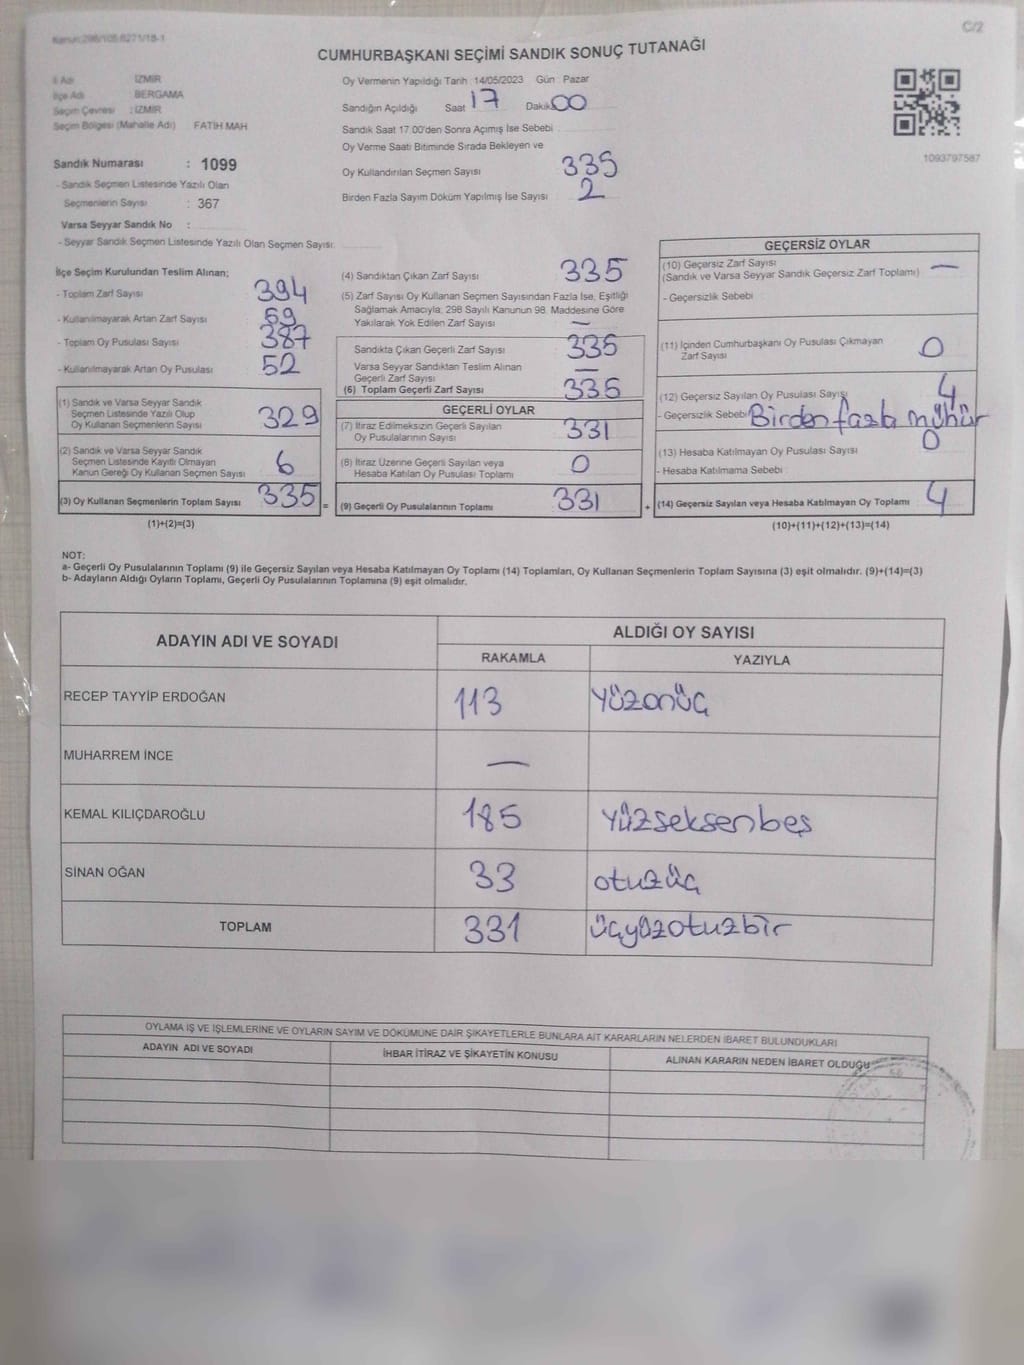 Kanun:298/105,6271/18-1
C/2
CUMHURBAŞKANI SEÇİMİ SANDIK SONUÇ TUTANAĞI
İl Adı : İZMİR
İlçe Adı : BERGAMA
Seçim Çevresi : İZMİR
Seçim Bölgesi (Mahalle Adı) FATİH MAH
Sandık Numarası : 1099
- Sandık Seçmen Listesinde Yazılı Olan
Seçmenlerin Sayısı : 367
Varsa Seyyar Sandık No :
- Seyyar Sandık Seçmen Listesinde Yazılı Olan Seçmen Sayısı:
Oy Vermenin Yapıldığı Tarih 14/05/2023 Gün Pazar
Sandığın Açıldığı Saat 17 Dakika 00
Sandık Saat 17.00'den Sonra Açımış İse Sebebi
Oy Verme Saati Bitiminde Sırada Bekleyen ve
Oy Kullandırılan Seçmen Sayısı 335
Birden Fazla Sayım Döküm Yapılmış İse Sayısı 2
1093797587
İlçe Seçim Kurulundan Teslim Alınan;
- Toplam Zarf Sayısı 394
- Kullanılmayarak Artan Zarf Sayısı 59
- Toplam Oy Pusulası Sayısı 387
- Kullanılmayarak Artan Oy Pusulası 52
(1) Sandık ve Varsa Seyyar Sandık
Seçmen Listesinde Yazılı Olup
Oy Kullanan Seçmenlerin Sayısı 329
(2) Sandık ve Varsa Seyyar Sandık
Seçmen Listesinde Kayıtlı Olmayan
Kanun Gereği Oy Kullanan Seçmen Sayısı 6
(3) Oy Kullanan Seçmenlerin Toplam Sayısı 335 =
(1)+(2)=(3)
(4) Sandıktan Çıkan Zarf Sayısı 335
(5) Zarf Sayısı Oy Kullanan Seçmen Sayısından Fazla İse, Eşitliği
Sağlamak Amacıyla, 298 Sayılı Kanunun 98. Maddesine Göre
Yakılarak Yok Edilen Zarf Sayısı —
Sandıkta Çıkan Geçerli Zarf Sayısı 335
Varsa Seyyar Sandıktan Teslim Alınan
Geçerli Zarf Sayısı —
(6) Toplam Geçerli Zarf Sayısı 335
GEÇERLİ OYLAR
(7) İtiraz Edilmeksizin Geçerli Sayılan
Oy Pusulalarının Sayısı 331
(8) İtiraz Üzerine Geçerli Sayılan veya
Hesaba Katılan Oy Pusulası Toplamı 0
(9) Geçerli Oy Pusulalarının Toplamı 331 +
GEÇERSİZ OYLAR
(10) Geçersiz Zarf Sayısı —
(Sandık ve Varsa Seyyar Sandık Geçersiz Zarf Toplamı)
- Geçersizlik Sebebi
(11) İçinden Cumhurbaşkanı Oy Pusulası Çıkmayan
Zarf Sayısı 0
(12) Geçersiz Sayılan Oy Pusulası Sayısı 4
- Geçersizlik Sebebi Birden fazla mühür
(13) Hesaba Katılmayan Oy Pusulası Sayısı 0
- Hesaba Katılmama Sebebi
(14) Geçersiz Sayılan veya Hesaba Katılmayan Oy Toplamı 4
(10)+(11)+(12)+(13)=(14)
NOT:
a- Geçerli Oy Pusulalarının Toplamı (9) ile Geçersiz Sayılan veya Hesaba Katılmayan Oy Toplamı (14) Toplamları, Oy Kullanan Seçmenlerin Toplam Sayısına (3) eşit olmalıdır. (9)+(14)=(3)
b- Adayların Aldığı Oyların Toplamı, Geçerli Oy Pusulalarının Toplamına (9) eşit olmalıdır.
ADAYIN ADI VE SOYADI
ALDIĞI OY SAYISI
RAKAMLA YAZIYLA
RECEP TAYYİP ERDOĞAN 113 Yüzonüç
MUHARREM İNCE —
KEMAL KILIÇDAROĞLU 185 Yüzseksenbeş
SİNAN OĞAN 33 otuzüç
TOPLAM 331 üçyüzotuzbir
OYLAMA İŞ VE İŞLEMLERİNE VE OYLARIN SAYIM VE DÖKÜMÜNE DAİR ŞİKAYETLERLE BUNLARA AİT KARARLARIN NELERDEN İBARET BULUNDUKLARI
ADAYIN ADI VE SOYADI İHBAR İTİRAZ VE ŞİKAYETİN KONUSU ALINAN KARARIN NEDEN İBARET OLDUĞU